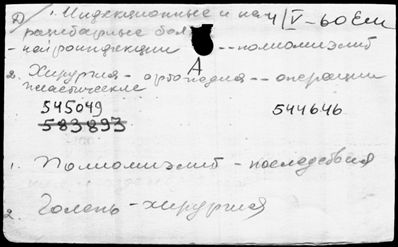 1. Инфекционные и пар V-60 Еш
разитарные бол
- нейроинфекции -- полиомиэлит
А
2. Хирургия - ортопедия -- операции
пластические
545049 544646
583893
1. Полиомиэлит - последствия
2. Голень - хирургия